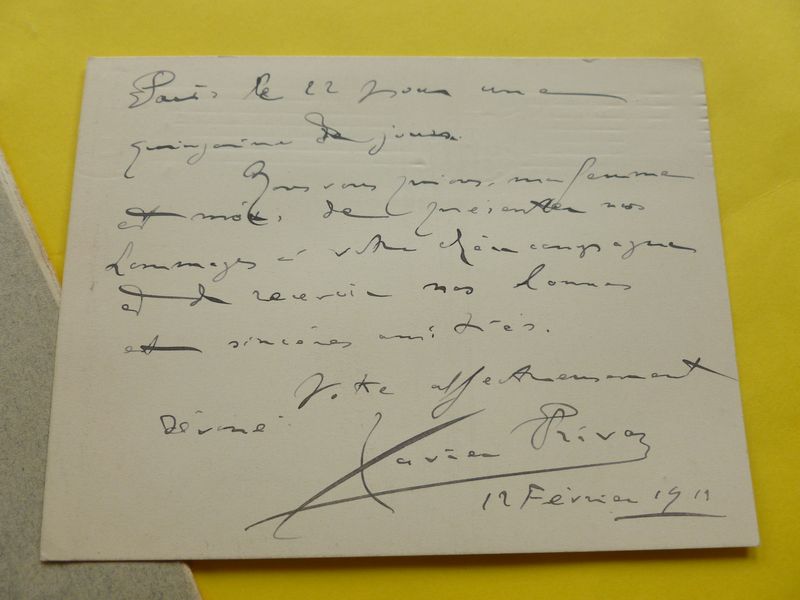 Paris le 22 pour une
quinzaine de jours.
Nous vous prions, ma femme
et moi, de présenter nos
hommages à votre chère compagne
et de recevoir nos bonnes
et sincères amitiés.
Votre affectueusement
dévoué
Xavier Privas
12 Février 1912